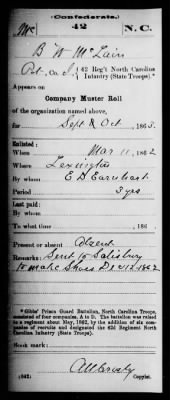 (Confederate.)
Mc 42 N.C.
B W McLain
Pvt, Co. I, 42 Reg't North Carolina
Infantry (State Troops).*
Appears on
Company Muster Roll
of the organization named above,
for Sept & Oct, 1863.
Enlisted:
When Mar 11, 1862
Where Lexington
By whom E D Earnhart
Period 3 yrs
Last paid:
By whom
To what time , 186 .
Present or absent Absent
Remarks: Sent to Salisbury
to make Shoes Dec 12 1862
*Gibbs' Prison Guard Battalion, North Carolina Troops,
consisted of four companies, A to D. The battalion was raised
to a regiment about May, 1862, by the addition of six com-
panies of recruits and designated the 42d Regiment North
Carolina Infantry (State Troops).
Book mark:
(642)
Copyist.